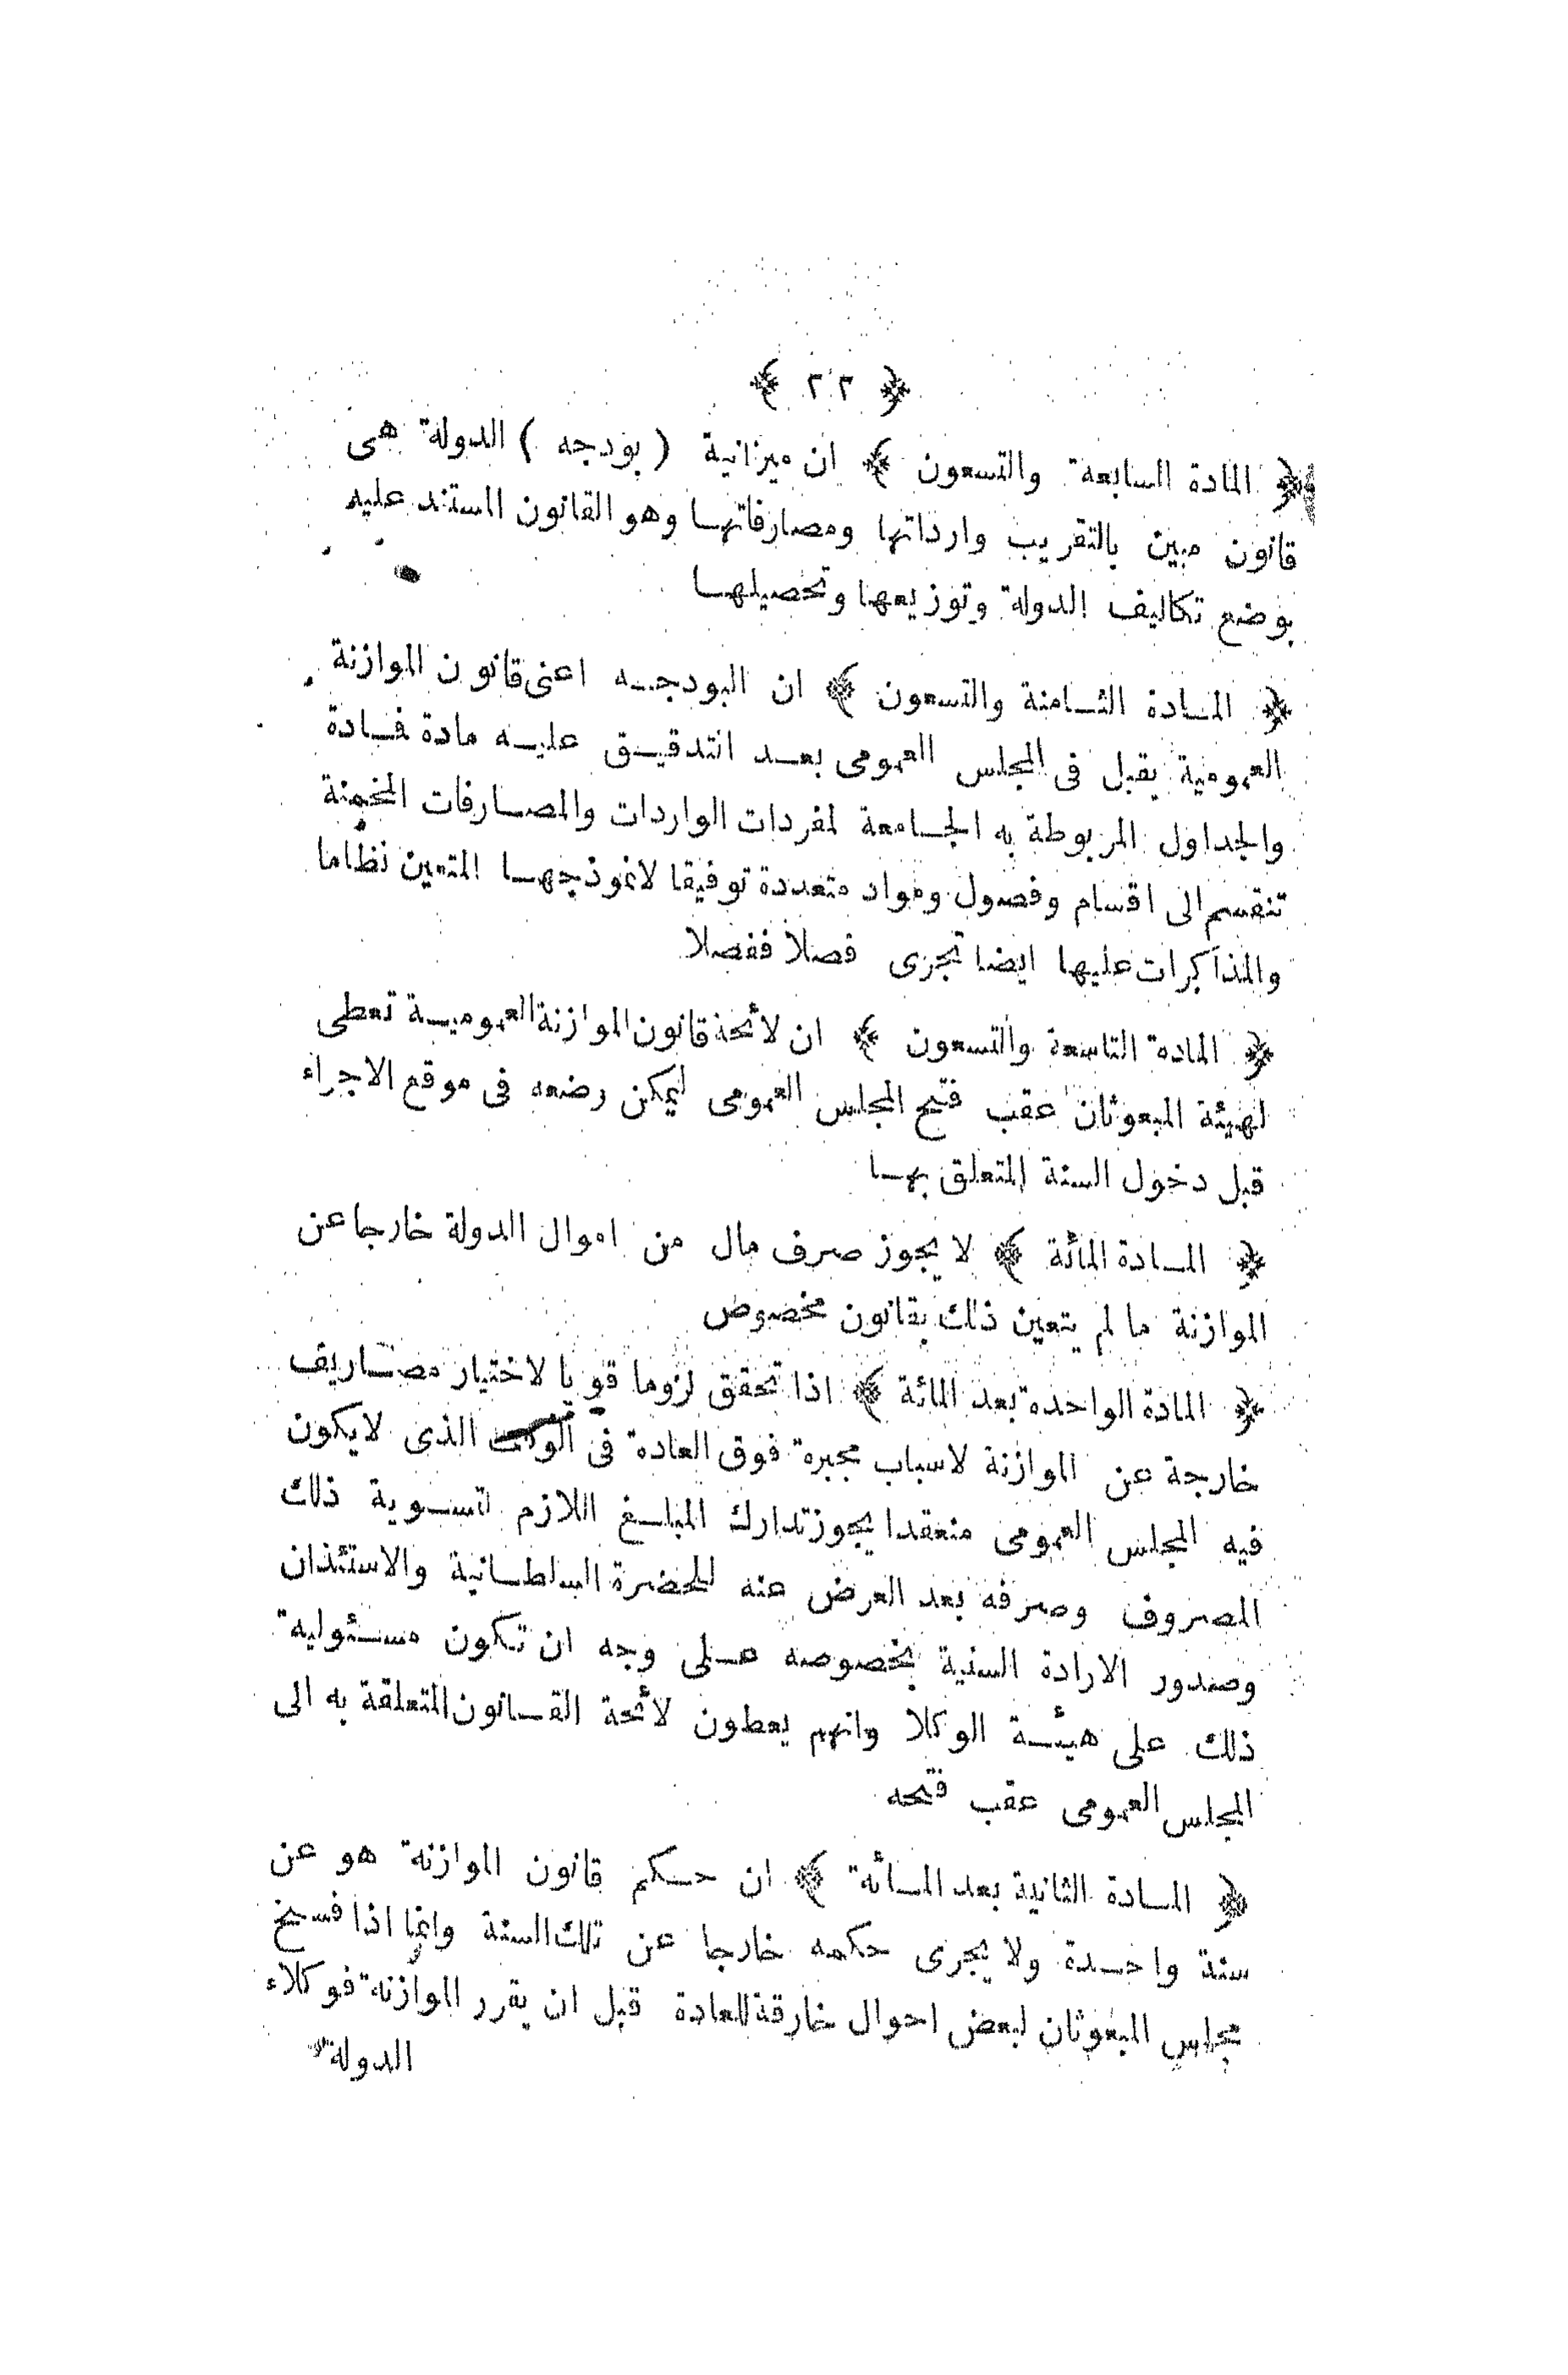 ﴿ ٢٢ ﴾
﴿ المادة السابعة والتسعون ﴾ ان ميزانية ( بودجه ) الدولة هى
قانون مبين بالتقريب وارداتها ومصارفاتها وهو القانون المستند عليه
بوضع تكاليف الدولة وتوزيعها وتحصيلها
﴿ المادة الثامنة والتسعون ﴾ ان البودجه اعنى قانون الموازنة
العمومية يقبل فى المجلس العمومى بعد التدقيق عليه مادة فمادة
والجداول المربوطة به الجامعة لمفردات الواردات والمصارفات المخمنة
تنقسم الى اقسام وفصول ومواد متعددة توفيقا لانموذجها المتعين نظاما
والمذاكرات عليها ايضا تجرى فصلا ففصلا
﴿ المادة التاسعة والتسعون ﴾ ان لائحة قانون الموازنة العمومية تعطى
لهيئة المبعوثان عقب فتح المجلس العمومى ليمكن وضعه فى موقع الاجراء
قبل دخول السنة المتعلق بها
﴿ المادة المائة ﴾ لا يجوز صرف مال من اموال الدولة خارجا عن
الموازنة ما لم يتعين ذلك بقانون مخصوص
﴿ المادة الواحدة بعد المائة ﴾ اذا تحقق لزوما قويا لاختيار مصاريف
خارجة عن الموازنة لاسباب مجبرة فوق العادة فى الوقت الذى لايكون
فيه المجلس العمومى منعقدا يجوز تدارك المبلغ اللازم لتسوية ذلك
المصروف وصرفه بعد العرض عنه للحضرة السلطانية والاستئذان
وصدور الارادة السنية بخصوصه على وجه ان تكون مسئولية
ذلك على هيئة الوكلا وانهم يعطون لائحة القانون المتعلقة به الى
المجلس العمومى عقب فتحه
﴿ المادة الثانية بعد المائة ﴾ ان حكم قانون الموازنة هو عن
سنة واحدة ولا يجرى حكمه خارجا عن تلك السنة وانما اذا فسخ
مجلس المبعوثان لبعض احوال خارقة للعادة قبل ان يقرر الموازنة فوكلاء
الدولة